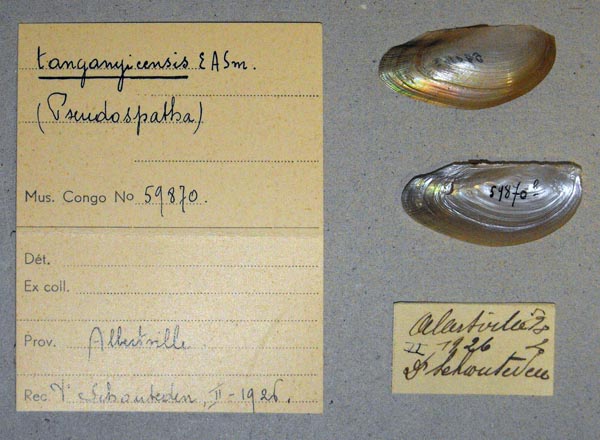 tanganyicensis E A Sm.
(Pseudospatha)
Mus. Congo No 59870.
Dét.
Ex coll.
Prov. Albertville
Rec. Dr Schouteden, II-1926.
59870
II 1926
Dr Schouteden